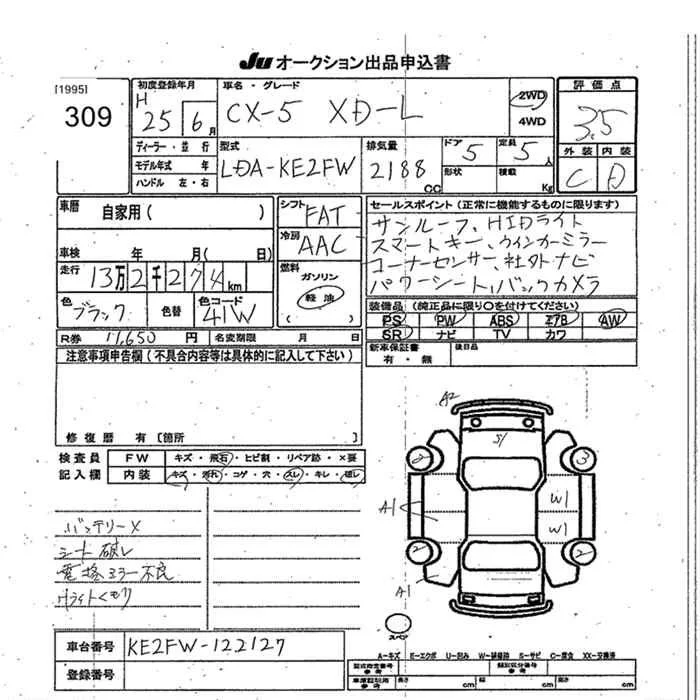 Ju オークション出品申込書
[1995]
309
初度登録年月
H 25年 6月
車名・グレード
CX-5 XD-L
2WD
4WD
評価点
3.5
外装 内装
C D
ディーラー・並行
モデル年式 年
ハンドル 左・右
型式
LDA-KE2FW
排気量
2188 CC
ドア 5
形状
定員 5人
積載 Kg
車歴 自家用( )
シフト FAT
冷房 AAC
車検 年 月( 日)
走行 13万2千274km
燃料
ガソリン
軽油
( )
色 ブラック
色替
色コード 41W
セールスポイント(正常に機能するものに限ります)
サンルーフ、HIDライト
スマートキー、ウインカーミラー
コーナーセンサー、社外ナビ
パワーシート、バックカメラ
装備品(純正品に限り○を付けてください)
PS PW ABS エアB AW
SR ナビ TV カワ
R券 11,650 円 名変期限 月 日
新車保証書
有・無
後日品
注意事項申告欄(不具合内容等は具体的に記入して下さい)
修復歴 有[箇所 ]
検査員
記入欄
FW キズ・飛石・ヒビ割・リペア跡・×要
内装 キズ・汚れ・コゲ・穴・スレ・キレ・破レ
バッテリー×
シート破レ
電格ミラー不良
Hライトくもり
A2
S1
2
3
A1
W1
W1
2
2
A1
スペア
車台番号 KE2FW-122127
登録番号
A-キズ E-エクボ U-凹み W-補修跡 S-サビ C-腐食 XX-交換済
型式指定番号
参考
類別区分番号
参考
車庫証明用
参考
長さ cm 幅 cm 高さ cm